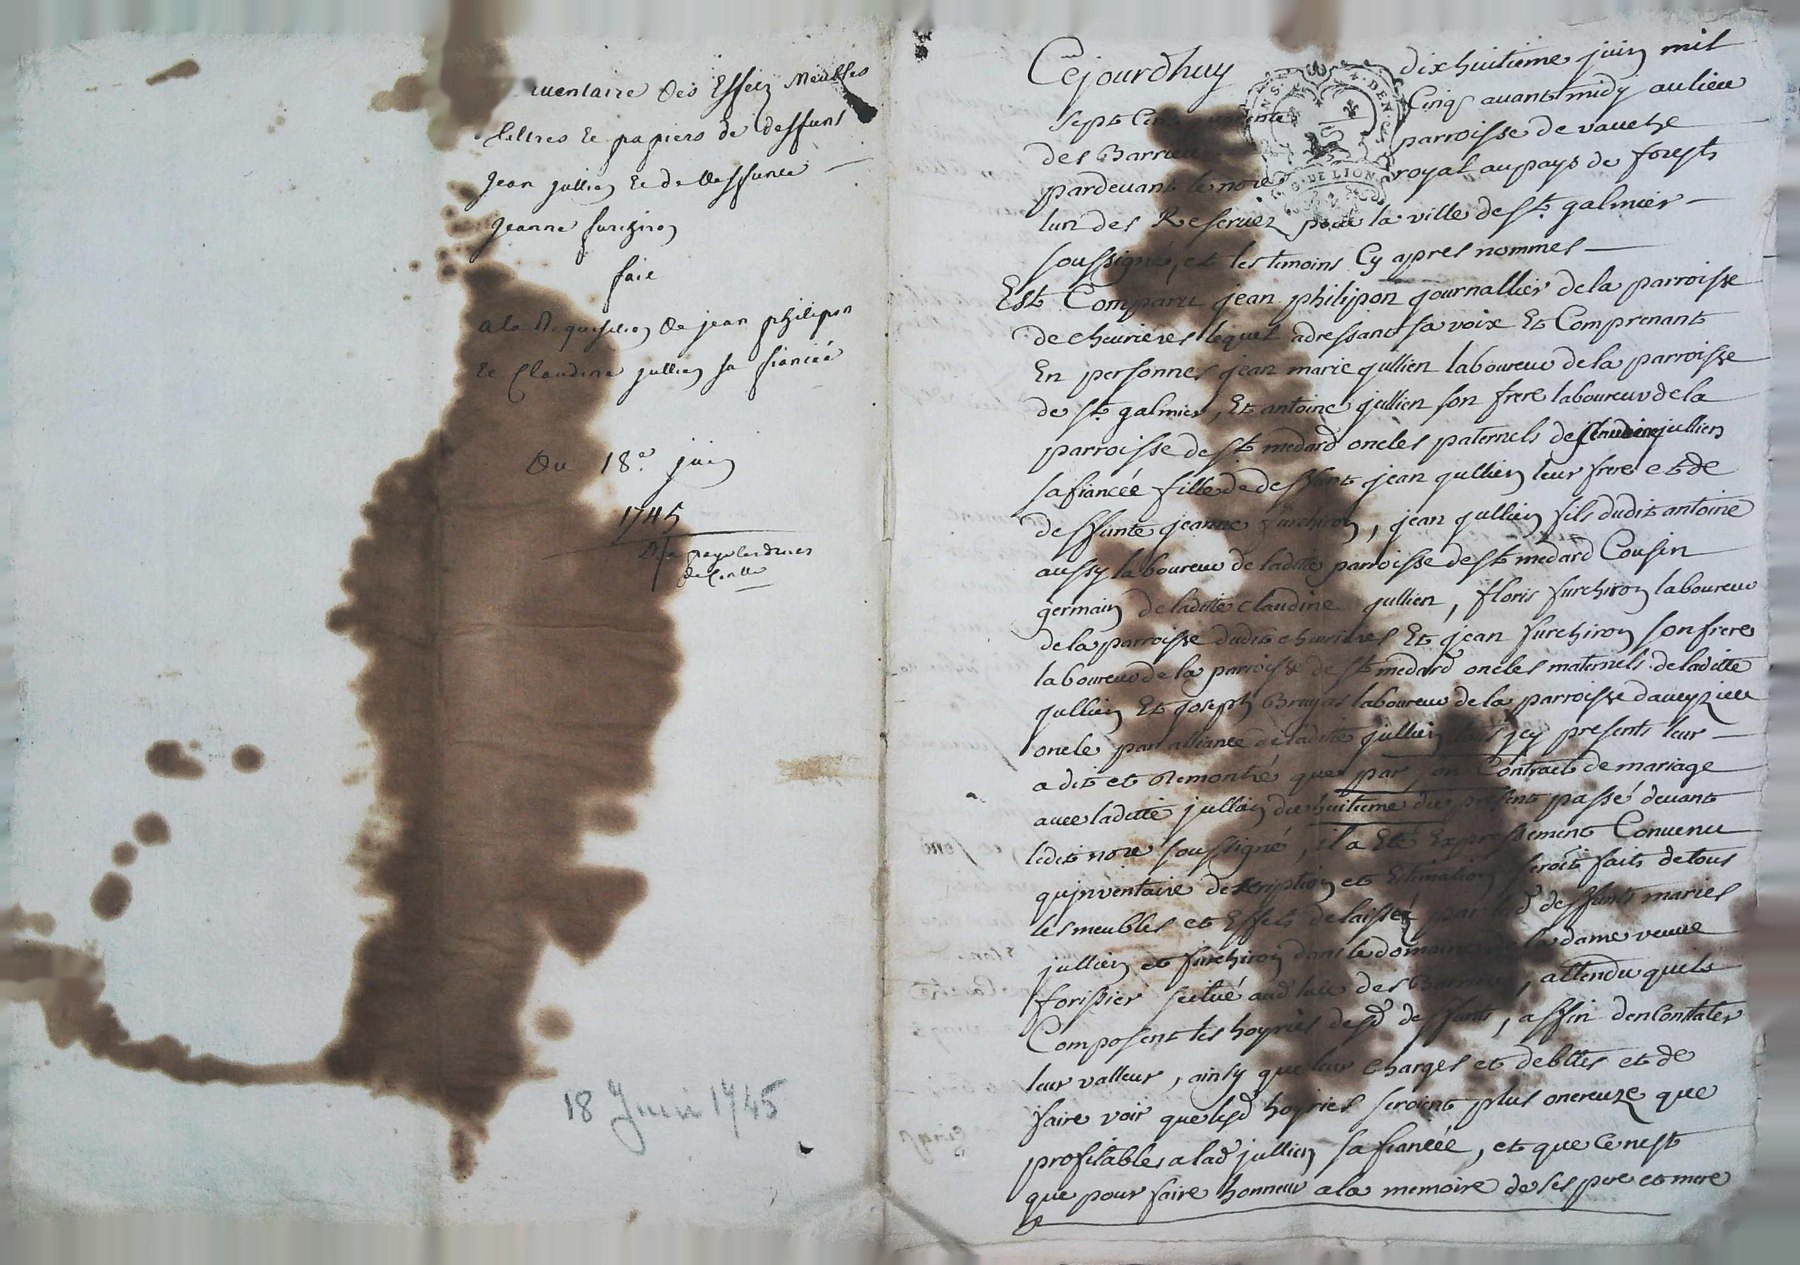 inventaire des Effets Meubles
tiltres et papiers de deffunt
jean jullien et de deffunte
jeanne furchiron
fait
a la Requisition de jean philipon
et Claudine jullien sa fiancée
Du 18e. juin
1745
18 Juin 1745
Cejourdhuy dixhuitieme juin mil
sept Cens quarente Cinq avant midy au lieu
des Barrieu parroisse de vauche
pardevant le nore royal au pays de forests
lun des Reservez pour la ville de st. galmier
soussigné, et les temoins Cy apres nommes
Est Comparu jean philipon journallier de la parroisse
de chevrieres lequel adressant sa voix Et Comprenant
En personnes jean marie jullien laboureur de la parroisse
de st. galmier, Et antoine jullien son frere laboureur de la
parroisse de st. medard oncles paternels de Claudine jullien
sa fiancée fille de deffunt jean jullien leur frere et de
deffunte jeanne furchiron, jean jullien fils dudit antoine
aussy laboureur de ladite parroisse de st medard Cousin
germain de laditte claudine jullien, floris furchiron laboureur
de la parroisse dudit chevrieres Et jean furchiron son frere
laboureur de la parroisse de st medard oncles maternels de laditte
jullien Et joseph Bruyas laboureur de la parroisse daveyzieu
oncle par alliance de ladite jullien tous jcy presents leur
a dit et Remontré que par son Contract de mariage
avec laditte jullien du huitieme du present passé devant
ledit nore soussigné, il a Eté Expressement Convenu
qu'jnventaire description et Estimation seroit faits de tous
les meubles et Effets delaissés par lesd deffunts maries
jullien et furchiron dans le domaine de la dame veuve
forissier scitué aud lieu des Barrieu, attendu quels
Composent les hoyries desd deffunts, affin den Constater
leur valleur, ainsy que leur Charges et debttes et de
faire voir que lesd hoyries seroient plus onereuze que
profitables a lad jullien sa fiancée, et que Ce nest
que pour faire honneur a la memoire de ses pere et mere